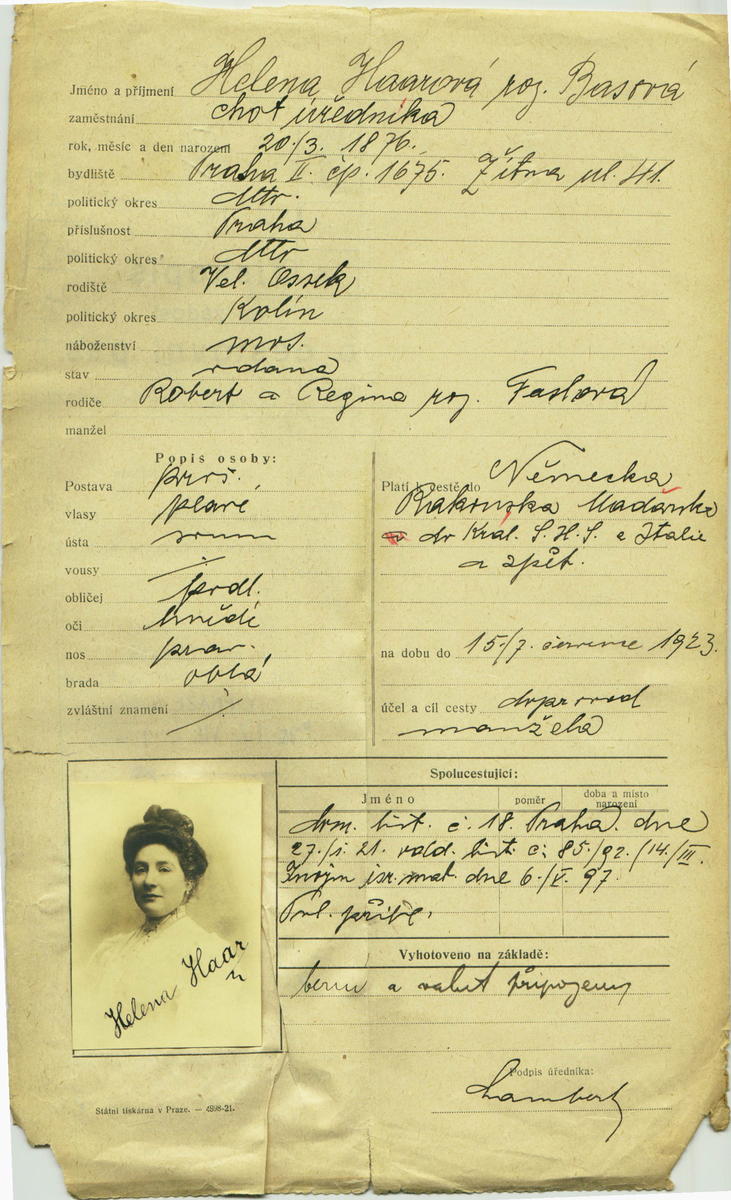 Jméno a příjmení Helena Haarová roz. Basová
zaměstnání choť úředníka
rok, měsíc a den narození 20./3. 1876.
bydliště Praha II. čp. 1675. Žitna ul. 41.
politický okres dtto.
příslušnost Praha
politický okres dtto
rodiště Vel. Ossek
politický okres Kolín
náboženství mos.
stav vdaná
rodiče Robert a Regina roz.
manžel
Popis osoby:
Postava prost.
vlasy plavé
ústa
vousy ./.
obličej podl.
oči hnědé
nos prav.
brada oblá
zvláštní znamení ./.
Platí k cestě do Německa
Rakouska Maďarska
do Král. S.H.S. a Italie
a zpět.
na dobu do 15./7. července 1923.
účel a cíl cesty doprovod
manžela
Spolucestující:
Jméno poměr doba a místo narození
dom. list. č. 18. Praha. dne
27./1. 21. odd. list. č. 85./92./14./III.
Znojm isr. mat. dne 6./V. 97.
Vyhotoveno na základě:
berní a valut připojeny
Helena Haar
Podpis úředníka:
Lambert
Státní tiskárna v Praze. — 4898-21.